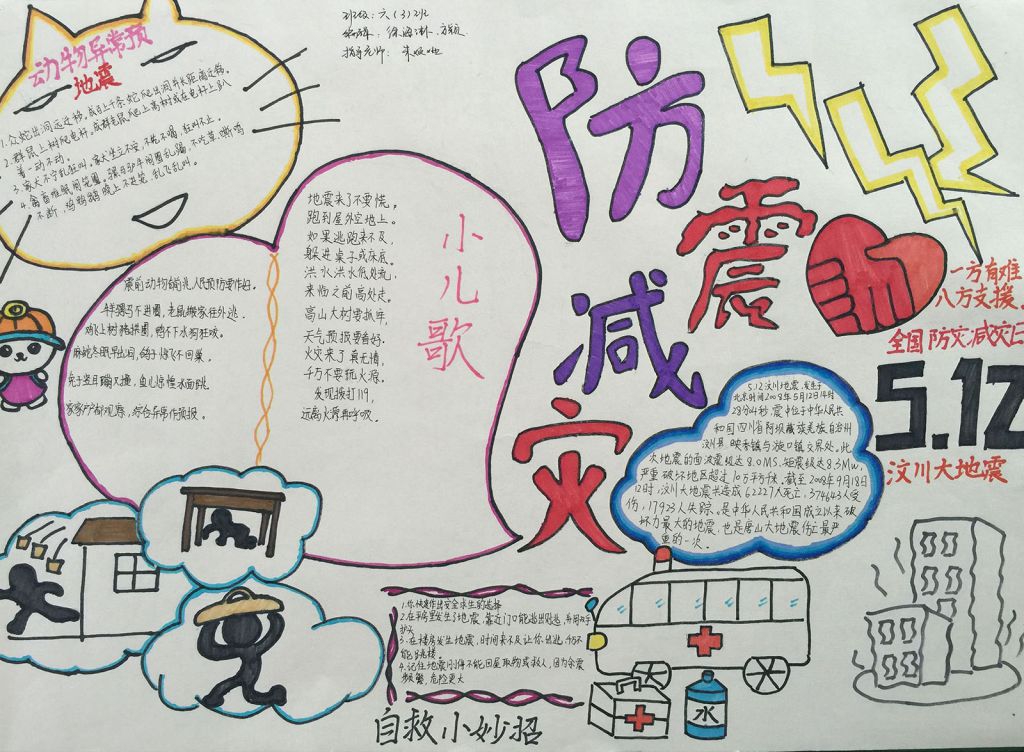 班级：六（3）班
指导老师：
动物异常预
地震
1.众蛇出洞远迁移。成百上千条蛇爬出洞外长距离迁移。
2.群鼠上树爬电杆。成群老鼠爬上高树或在电杆上趴
着一动不动。
3.家犬不宁乱狂叫。家犬坐立不安，不吃不喝，狂叫不止。
4.禽畜难眠闹笼圈。骡马驴牛闹圈乱蹦，不吃草，嘶鸣
不断，鸡鸭鹅晚上不进笼，乱飞乱叫。
防
震
减
灾
一方有难
八方支援。
全国防灾减灾日
5.12
汶川大地震
小儿歌
地震来了不要慌。
跑到屋外空地上。
如果逃跑来不及，
躲进桌子或床底。
洪水洪水低处流，
来临之前高处走。
高山大树要抓牢，
天气预报要看好。
火灾来了真无情，
千万不要玩火源。
发现拨打119，
远离火源再呼吸。
震前动物有前兆人民预防要作好。
牛羊骡马不进圈，老鼠搬家往外逃，
鸡飞上树猪拱圈，鸭不下水狗狂咬。
麻蛇冬眠早出洞，鸽子惊飞不回巢。
兔子竖耳蹦又撞，鱼儿惊慌水面跳。
家家户户都观察，综合异常作预报。
5.12汶川地震，发生于
北京时间2008年5月12日14时
28分04秒，震中位于中华人民共
和国四川省阿坝藏族羌族自治州
汶川县映秀镇与漩口镇交界处。此
次地震的面波震级达8.0MS、矩震级达8.3MW，
严重破坏地区超过10万平方千米。截至2008年9月18日
12时，汶川大地震共造成62227人死亡，374643人受
伤，17923人失踪。是中华人民共和国成立以来破
坏力最大的地震，也是唐山大地震伤亡最严
重的一次。
2.在平房里发生了地震，靠近门口能逃出则逃，并用双手
护头
3.在楼房发生地震，时间来不及让你出逃，千万不
能跳楼。
4.记住地震刚停不能回屋取物或救人，因为余震
频繁，危险更大
自救小妙招
水